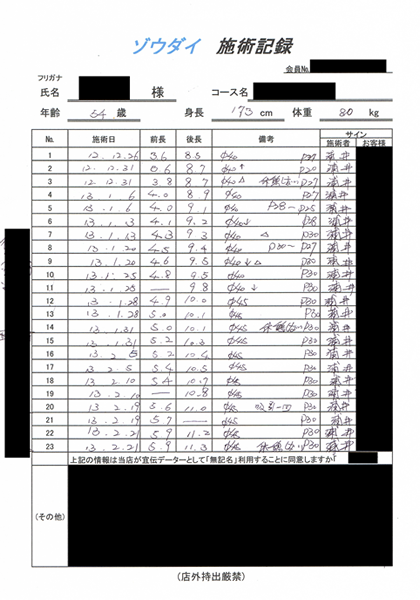 ゾウダイ 施術記録
会員No.
フリガナ
氏名 様 コース名
年齢 54 歳 身長 173 cm 体重 80 kg
No. 施術日 前長 後長 備考 サイン
施術者 お客様
1 12.12.26 3.6 8.5 φ40 P27
2 12.12.31 8.7 φ40 P20
3 12.12.31 3.8 8.7 φ40 P27
4 13.1.6 4.0 8.9 φ40 P27
5 13.1.6 4.0 9.1 φ40 P28~P25
6 13.1.13 4.1 9.2 φ40 P28
7 13.1.13 4.3 9.3 φ40 P30
8 13.1.20 4.5 9.4 φ40 P30~P27
9 13.1.20 4.6 9.5 φ40 P30
10 13.1.25 4.8 9.5 φ40 P30
11 13.1.25 — 9.8 φ40 P30
12 13.1.28 4.9 10.0 φ45 P30
13 13.1.28 5.0 10.1 φ45 P30
14 13.1.31 5.0 10.1 φ45 P30
15 13.1.31 5.2 10.3 φ45 P30
16 13.2.5 5.2 10.4 φ45 P30
17 13.2.5 5.4 10.5 φ45 P30
18 13.2.10 5.4 10.7 φ45 P30
19 13.2.10 — 10.8 φ45 P30
20 13.2.19 5.6 11.0 φ45 P30
21 13.2.19 5.7 — φ45 P30
22 13.2.21 5.9 11.2 φ45 P30
23 13.2.21 5.9 11.3 φ45 P30
上記の情報は当店が宣伝データーとして「無記名」利用することに同意しますか
(その他)
(店外持出厳禁)